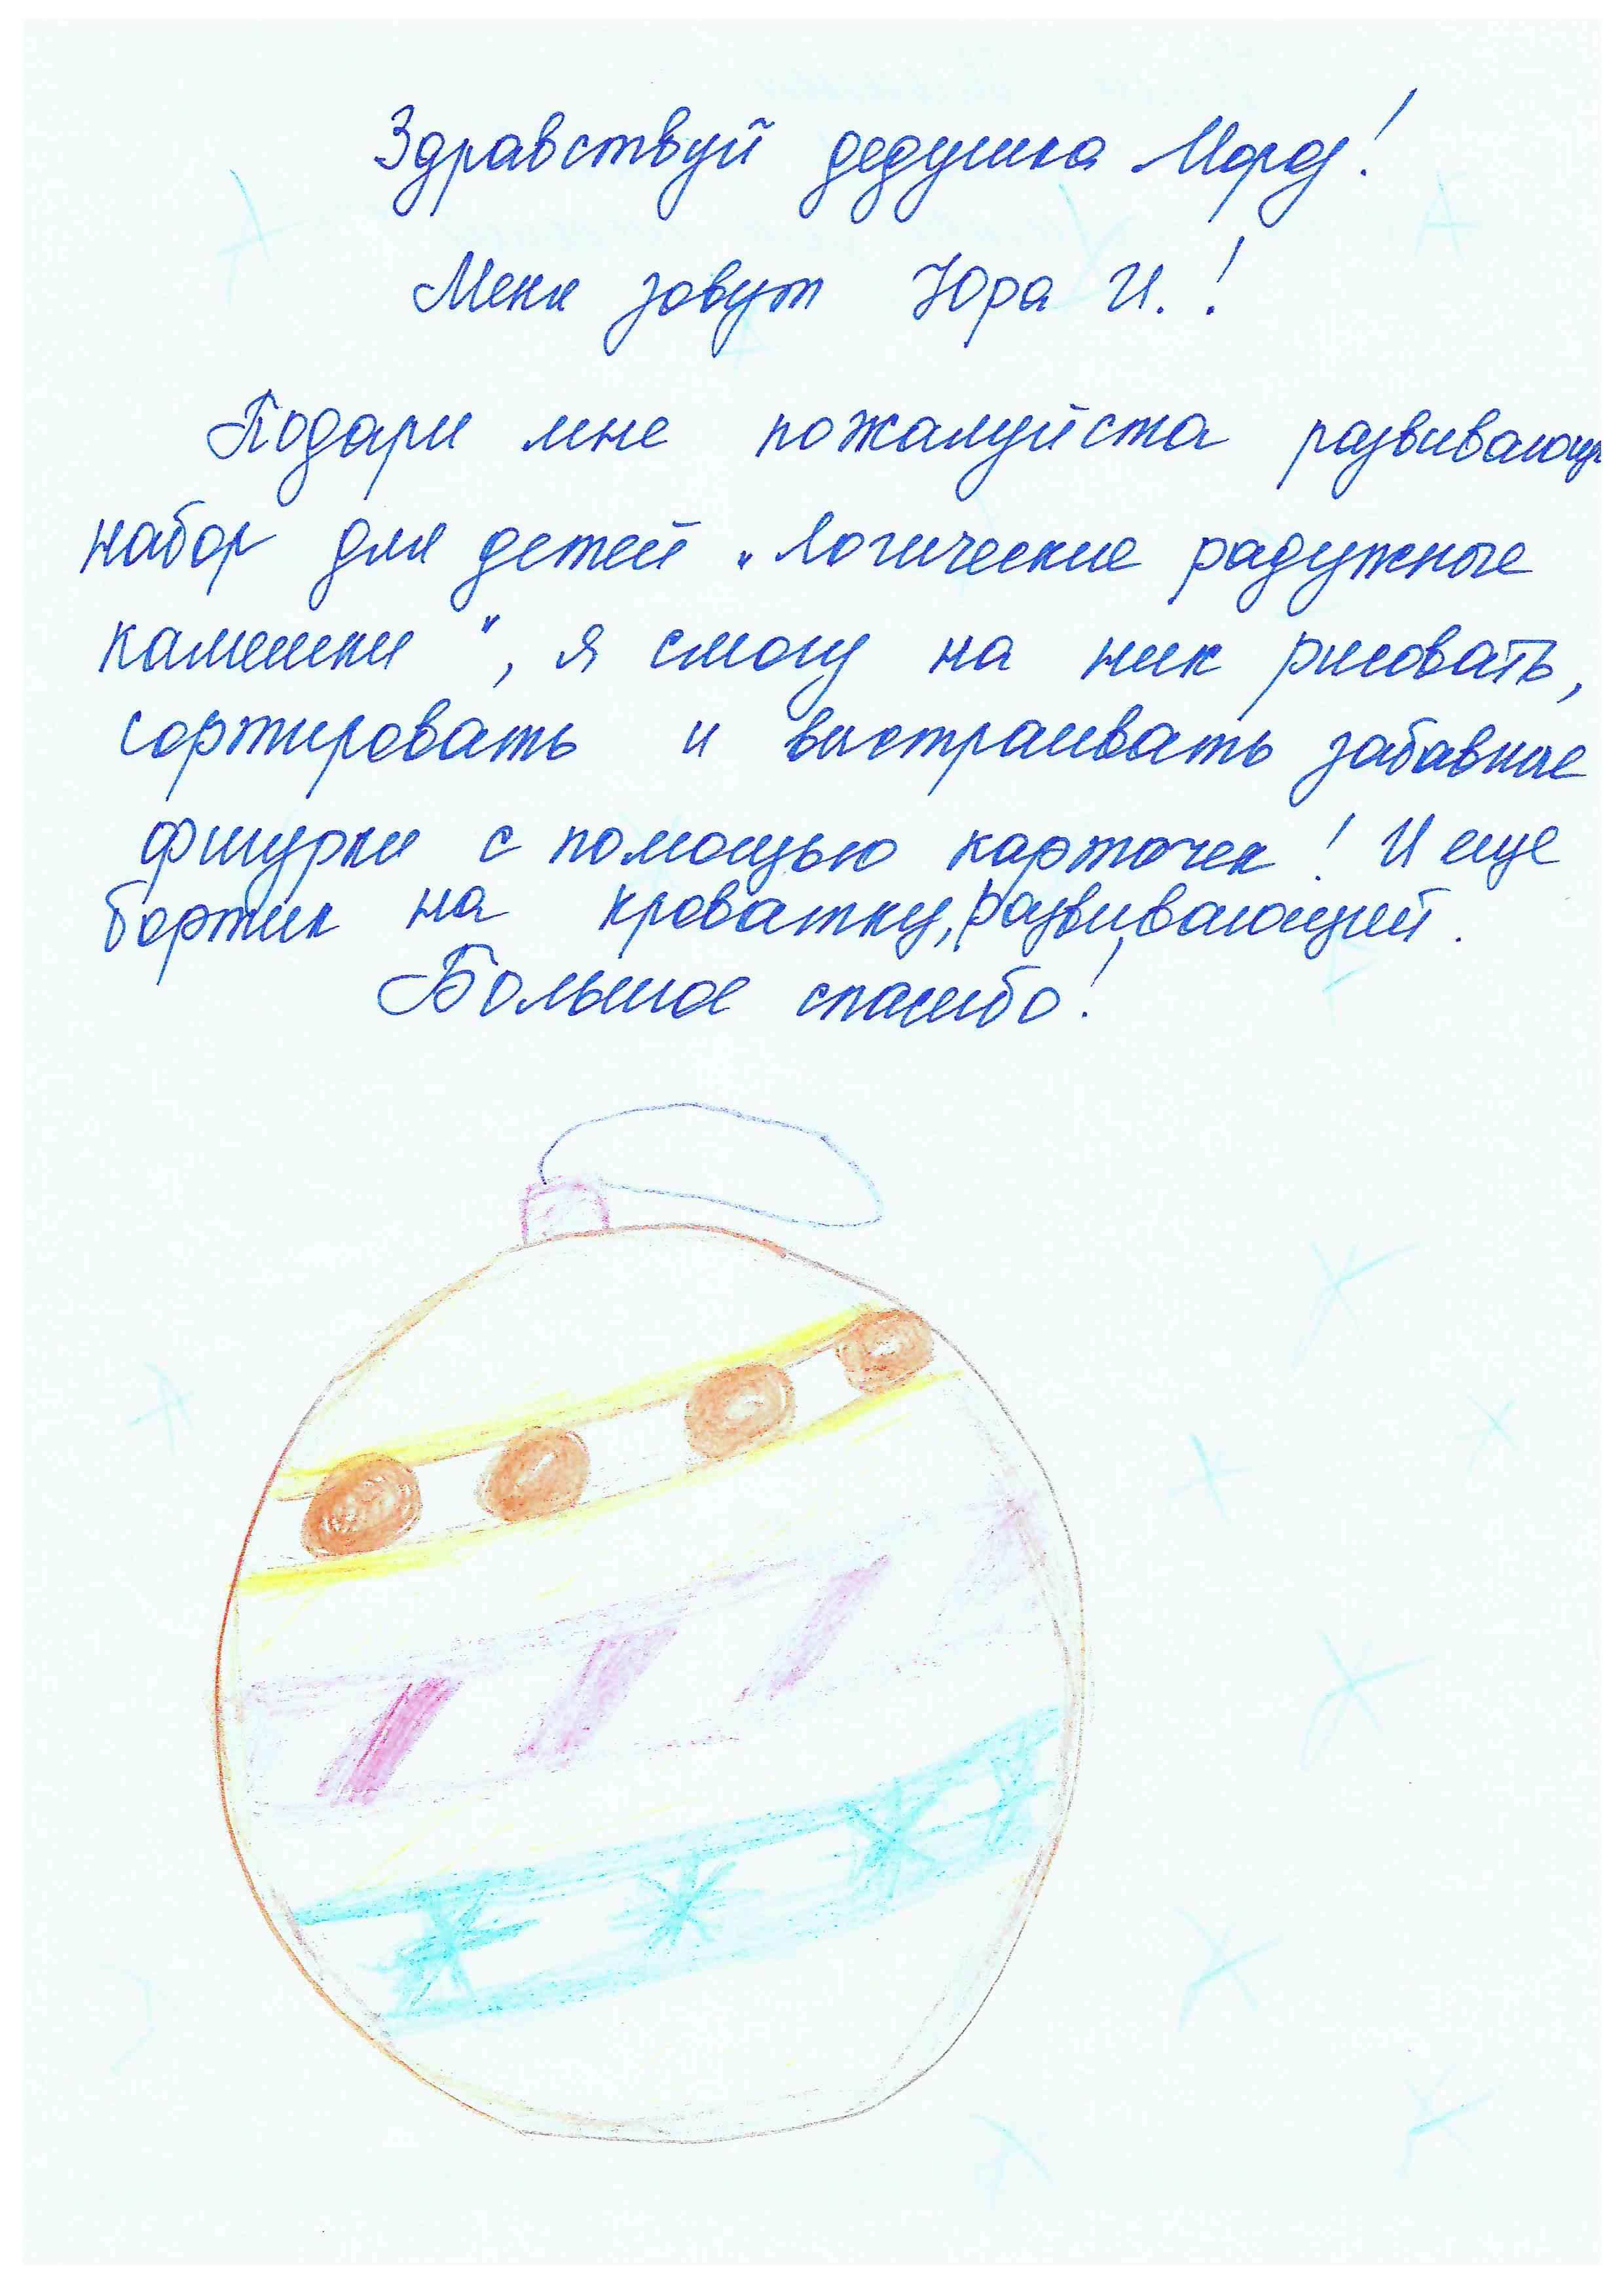 Здравствуй дедушка Мороз!
Меня зовут Юра И.!
Подари мне пожалуйста развивающ
набор для детей „Логические радужные
камешки", я смогу на них рисовать,
сортировать и выстраивать забавные
фигурки с помощью карточек! И еще
бортик на кроватку, развивающий.
Большое спасибо!